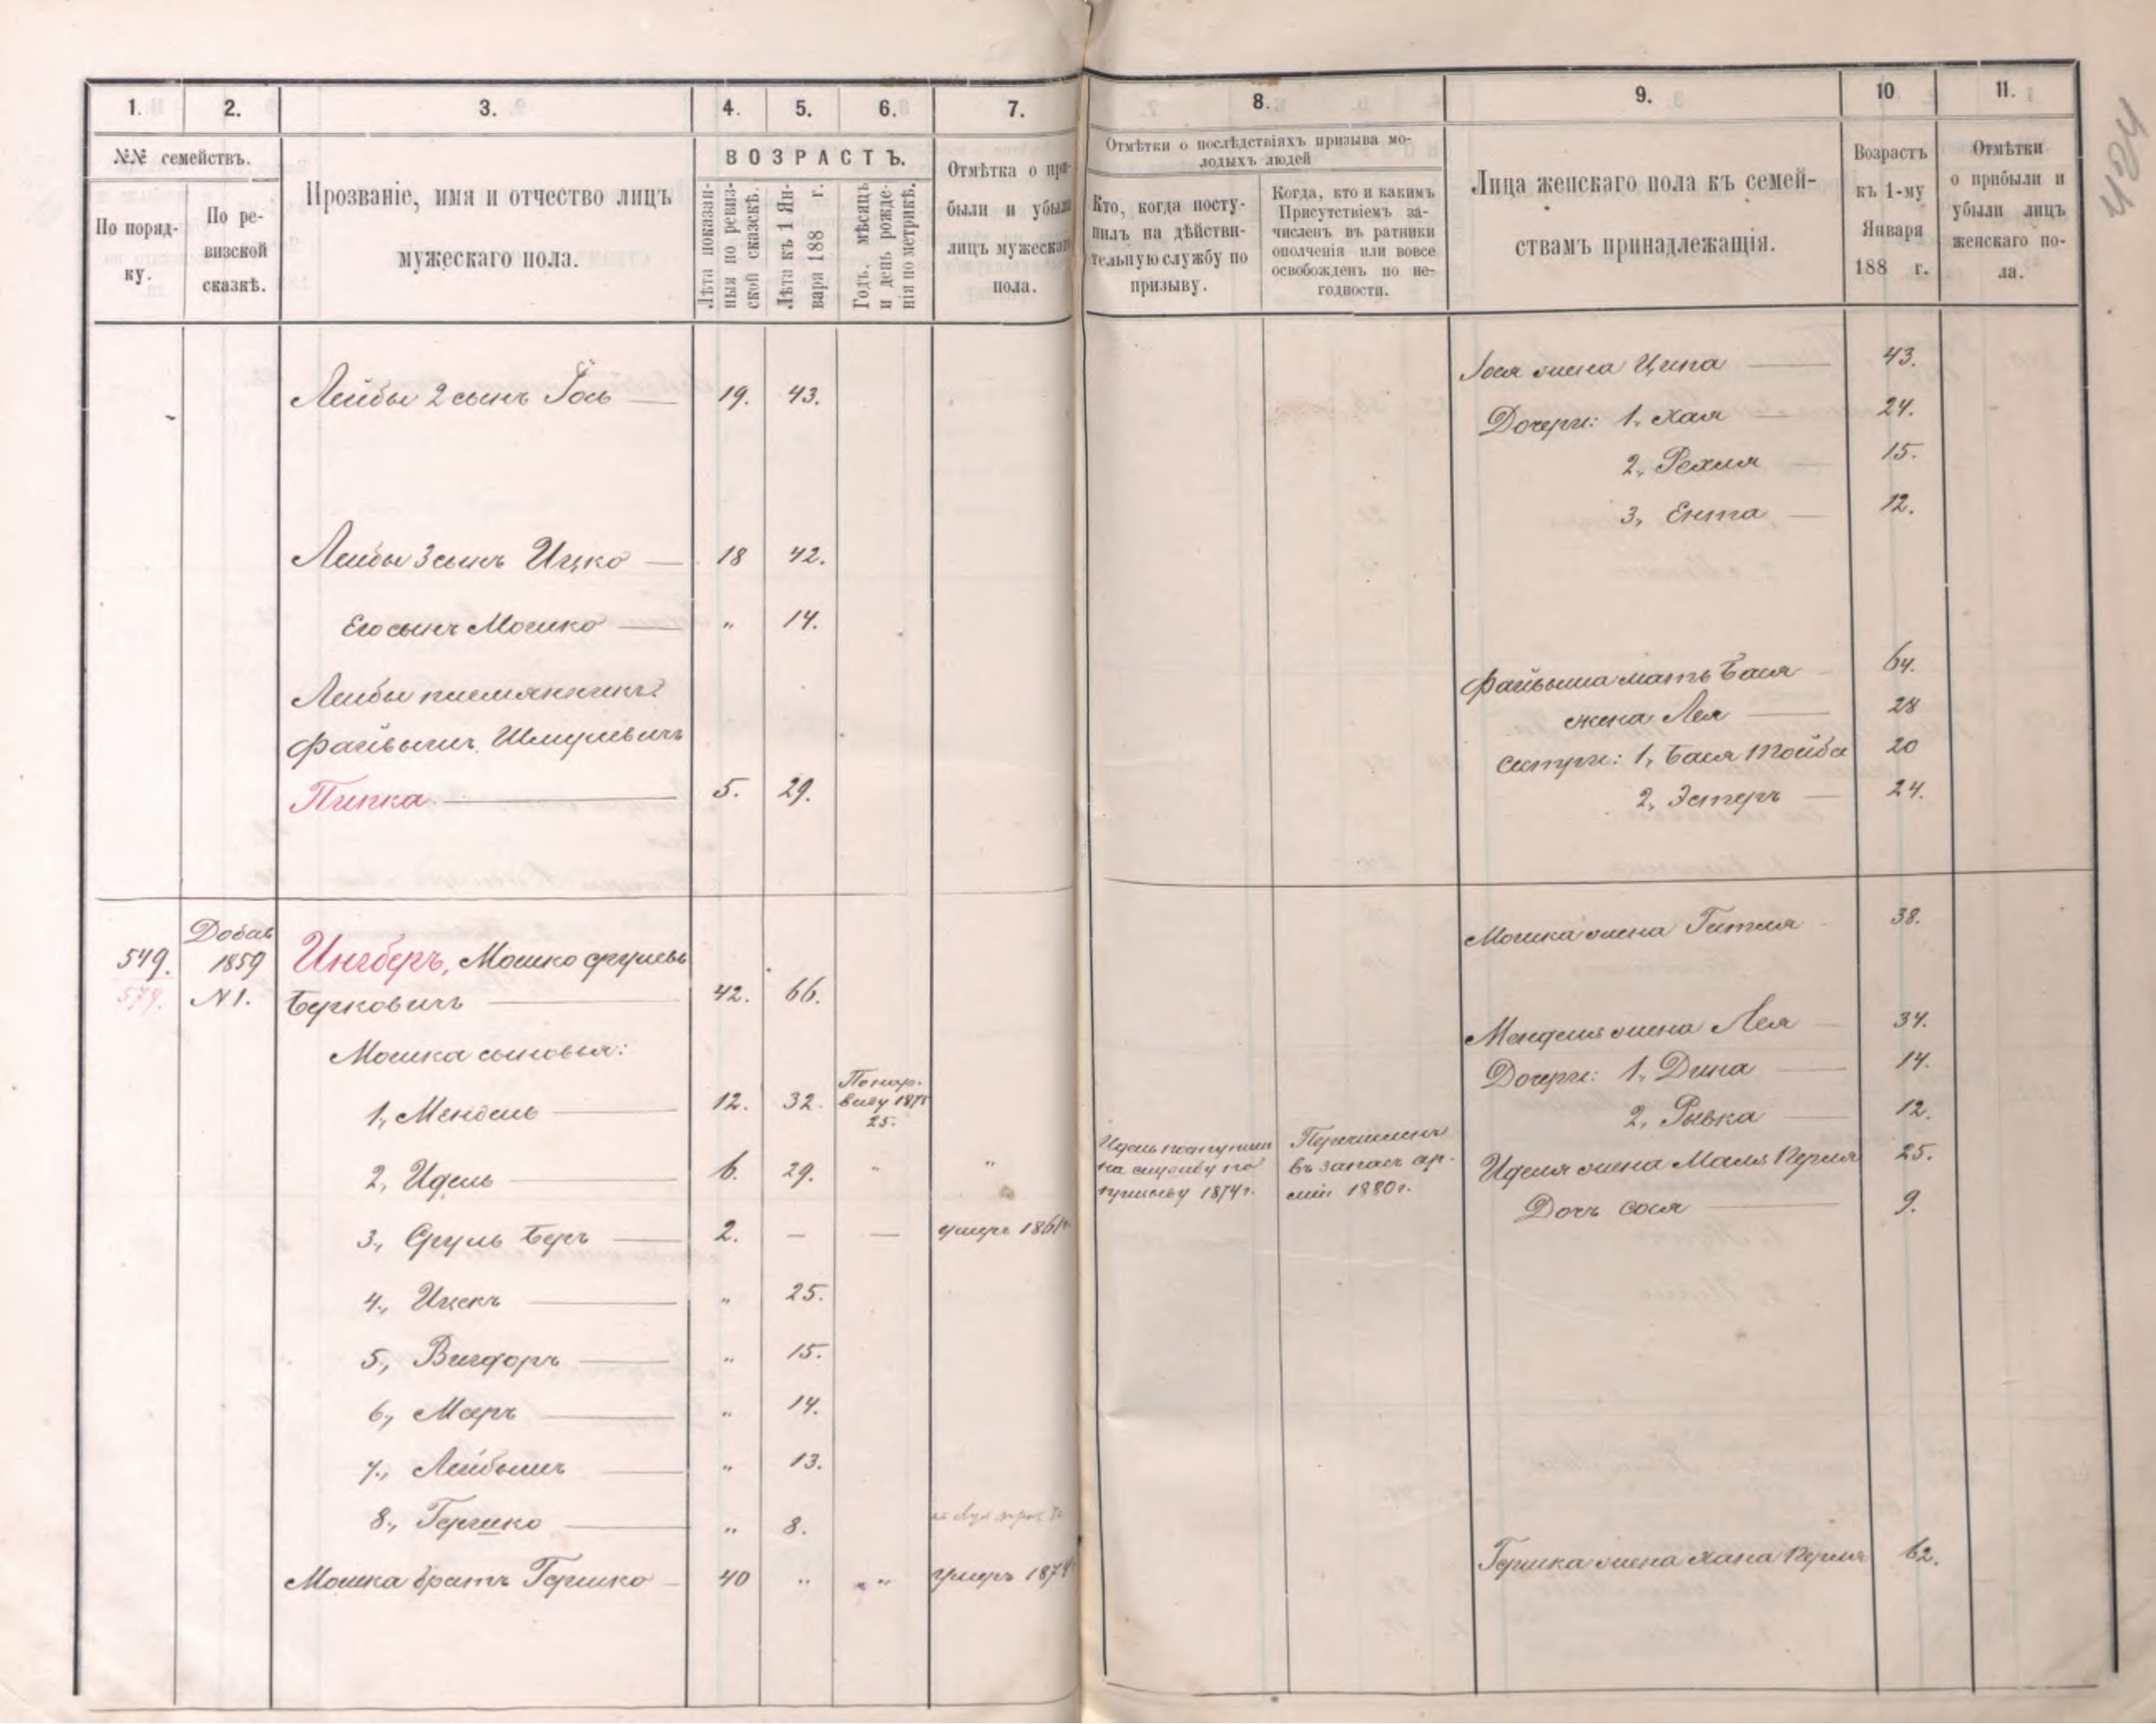 1. 2. 3. 4. 5. 6. 7. 8. 9. 10 11.
№№ семействъ.
По поряд-
ку.
По ре-
визской
сказкѣ.
Прозваніе, имя и отчество лицъ
мужескаго пола.
ВОЗРАСТЪ.
Лѣта показан-
ныя по ревиз-
ской сказкѣ.
Лѣта къ 1 Ян-
варя 188 г.
Годъ, мѣсяцъ
и день рожде-
нія по метрикѣ.
Отмѣтка о при-
были и убыли
лицъ мужескаго
пола.
Отмѣтки о послѣдствіяхъ призыва мо-
лодыхъ людей
Кто, когда посту-
пилъ на дѣйстви-
тельную службу по
призыву.
Когда, кто и какимъ
Присутствіемъ за-
численъ въ ратники
ополченія или вовсе
освобожденъ по не-
годности.
Лица женскаго пола къ семей-
ствамъ принадлежащія.
Возрастъ
къ 1-му
Января
188 г.
Отмѣтки
о прибыли и
убыли лицъ
женскаго по-
ла.
424
Лейбы 2 сынъ Іось 19. 43.
Лейбы 3 сынъ Ицко 18 42.
Его сынъ Мошко " 14.
Лейбы племянникъ
Файвышъ Шмулевичъ
Пипка 5. 29.
Іося жена Ципа 43.
Дочери: 1, Хая 24.
2, Рехля 15.
3, Ента 12.
Файвыша мать Бася 64.
жена Лея 28
сестры: 1, Бася Тойба 20
2, Эстеръ 24.
549.
579.
Добав
1859
N 1.
Ингберъ, Мошко Срулевъ
Берковичъ 42. 66.
Мошка сыновья:
1, Мендель 12. 32.
25.
2, Идель 6. 29. " "
3, Сруль Беръ 2. — — умеръ
4, Ицекъ " 25.
5, Вигдоръ " 15.
6, Мееръ " 14.
7, Лейбышъ " 13.
8, Гершко " 8.
Мошка братъ Гершко 40 " " умеръ
Идель поступилъ
на службу по
призыву 1874 г.
Перечисленъ
въ запасъ ар-
міи 1880 г.
Мошка жена Гитля 38.
Менделя жена Лея 34.
Дочери: 1, Дина 14.
2, Рывка 12.
Иделя жена Маля Перля 25.
Дочь Сося 9.
Гершка жена Хана Перля 62.